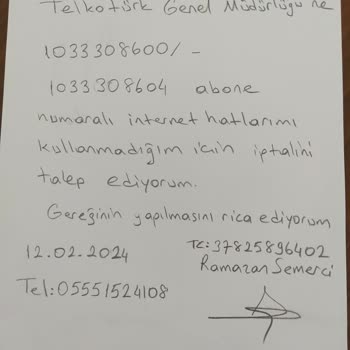 Telkotürk Genel Müdürlüğü'ne
1033308600/-
1033308604 abone
numaralı internet hatlarımı
kullanmadığım için iptalini
talep ediyorum.
Gereğinin yapılmasını rica ediyorum
12.02.2024
TC:37825896402
Ramazan Semerci
Tel:05551524108